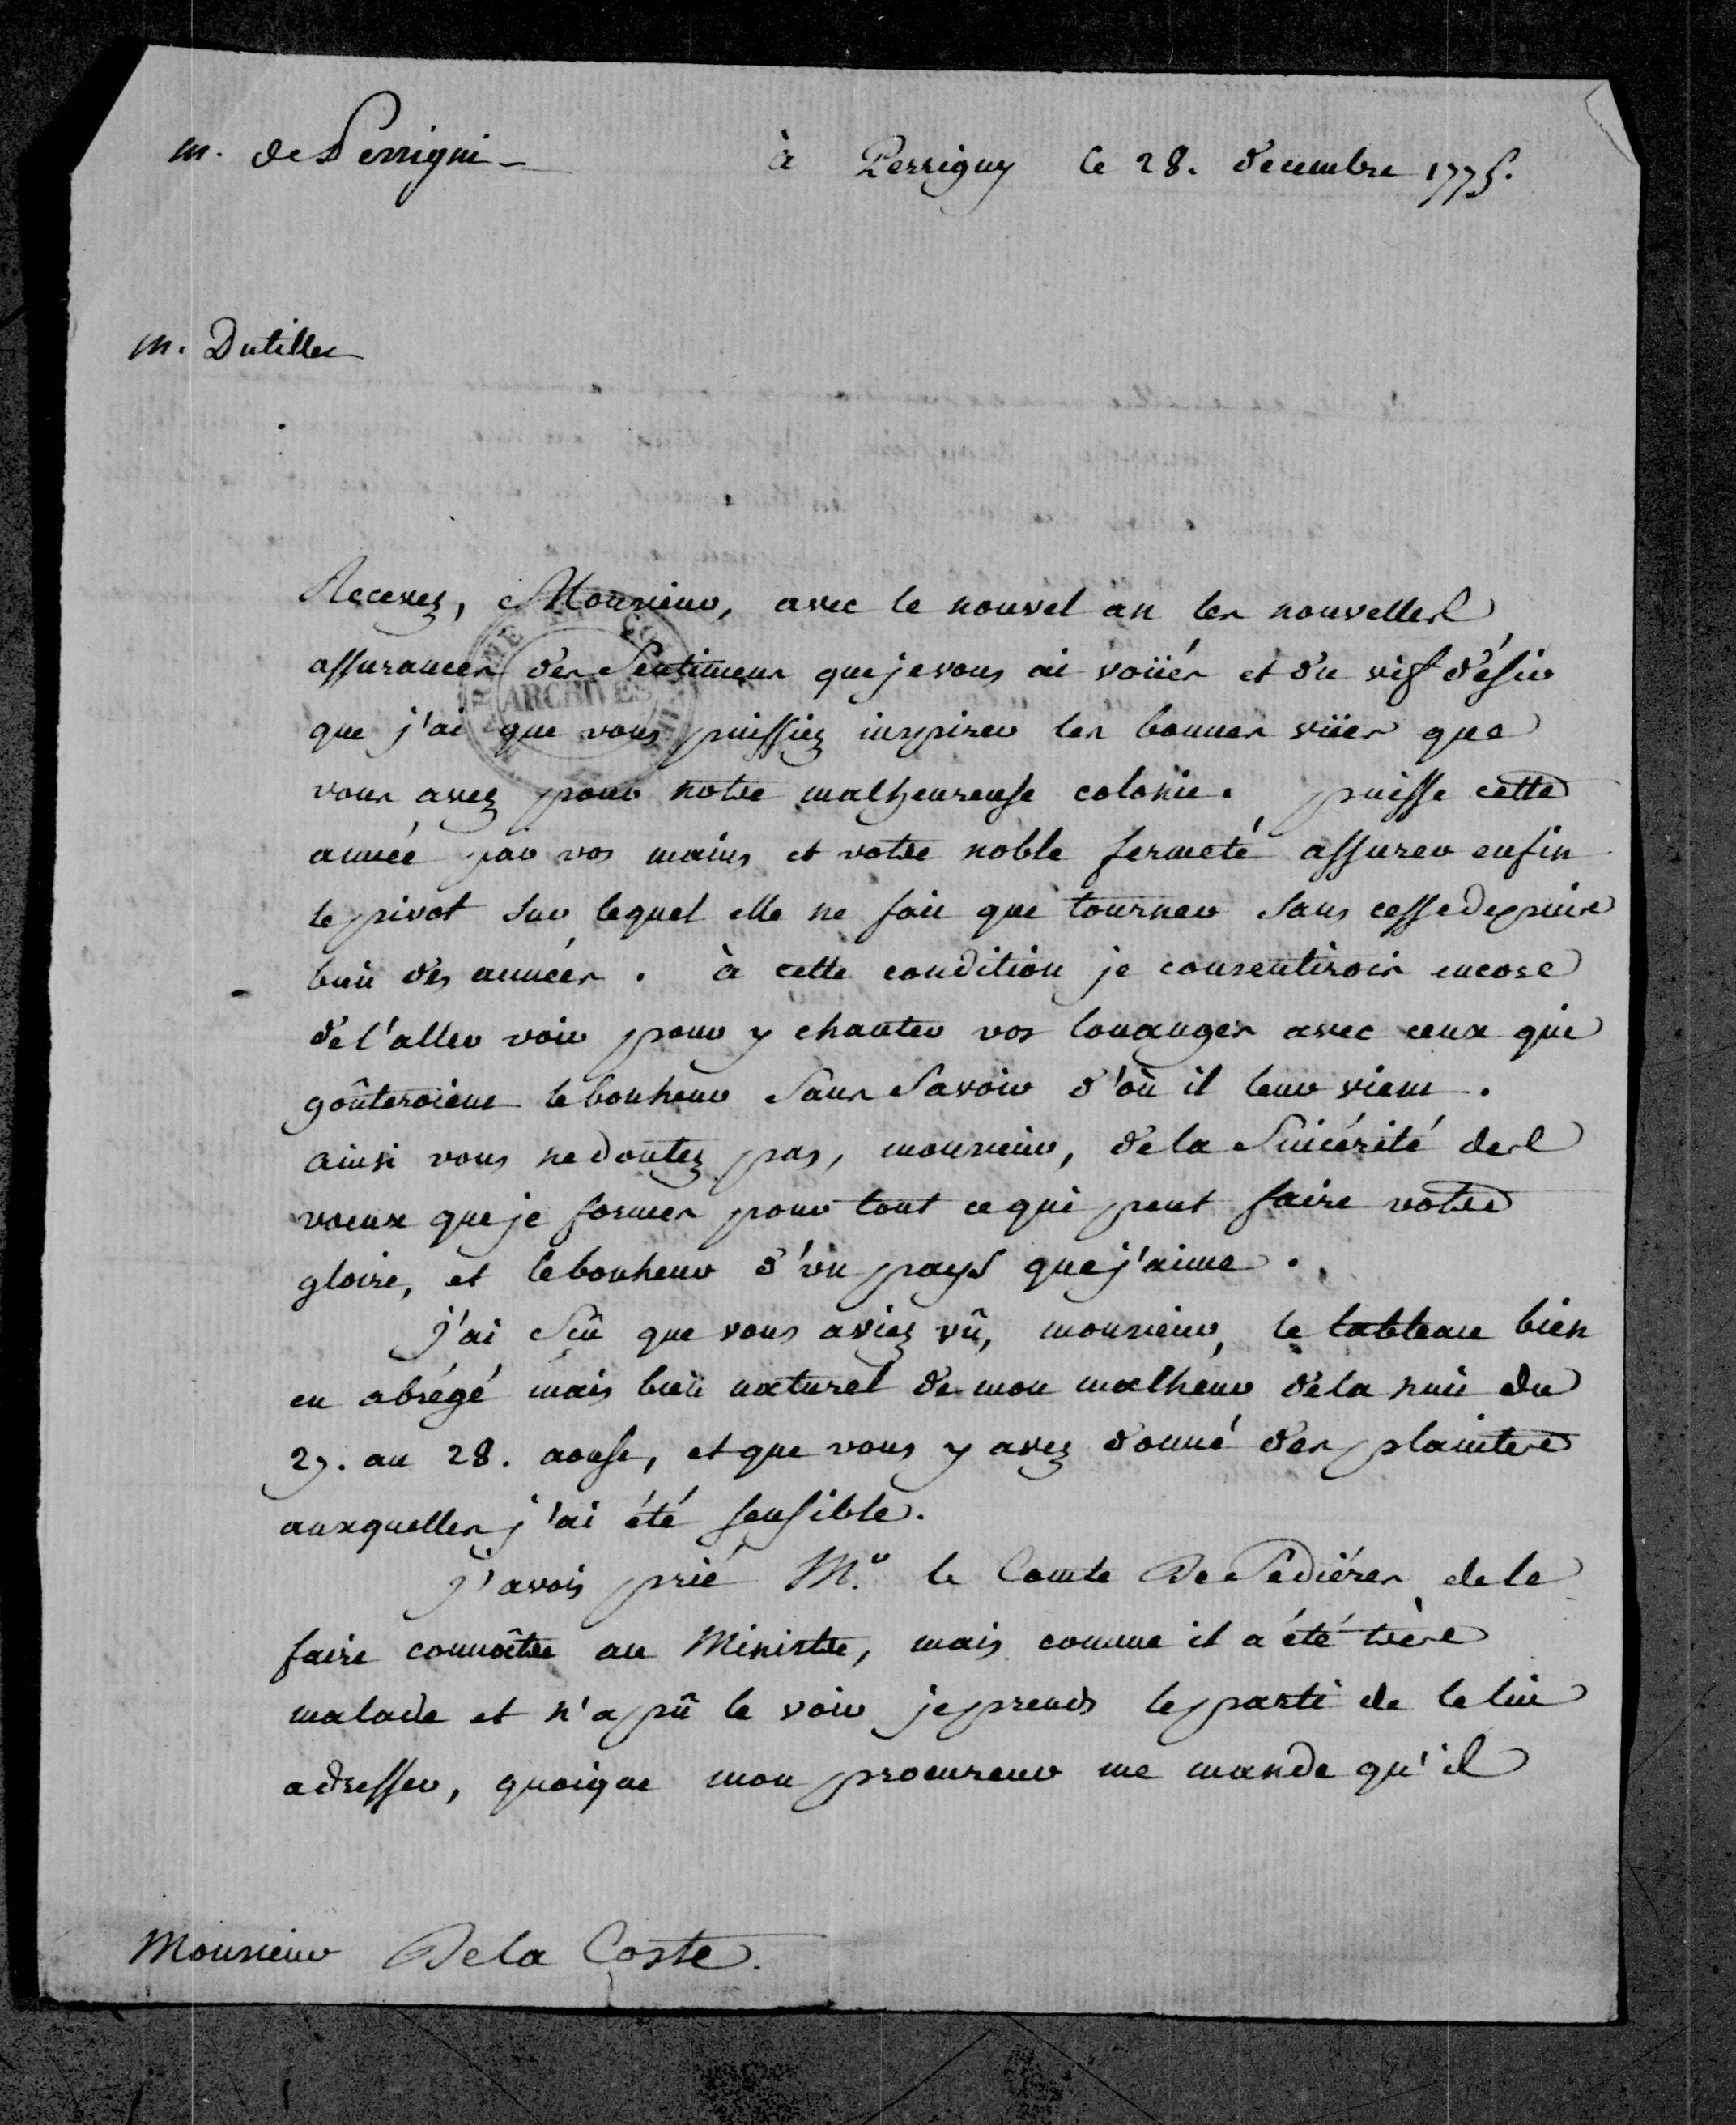 m. de Perrigni
à Perrigny le 28. decembre 1775.
m. Dutillet
Recevez, Monsieur, avec le nouvel an les nouvelles
assurances des Sentimens que je vous ai voüés et du vif désir
que j'ai que vous puissiez inspirer les bonnes vües que
vous avez pour notre malheureuse colonie. puisse cette
année par vos mains et votre noble fermeté assurer enfin
le pivot sur lequel elle ne fait que tourner sans cesse depuis
bien des années. à cette condition je consentirois encore
de l'aller voir pour y chanter vos louanges avec ceux qui
goûteroient le bonheur sans savoir d'où il leur vient.
ainsi vous ne doutez pas, monsieur, de la Sincérité des
voeux que je formes pour tout ce qui peut faire votre
gloire, et le bonheur d'un pays que j'aime.
J'ai Sçû que vous aviez vû, monsieur, le tableau bien
en abrégé mais bien naturel de mon malheur de la nuit du
27. au 28. aoust, et que vous y avez donné des plaintes
auxquelles j'ai été sensible.
J'avois prié Mr. le Comte De Pediéres de le
faire connoître au Ministre, mais comme il a été très
malade et n'a pû le voir je prends le parti de le lui
adresser, quoique mon procureur me mande qu'il
Monsieur De la Coste.
ARCHIVES